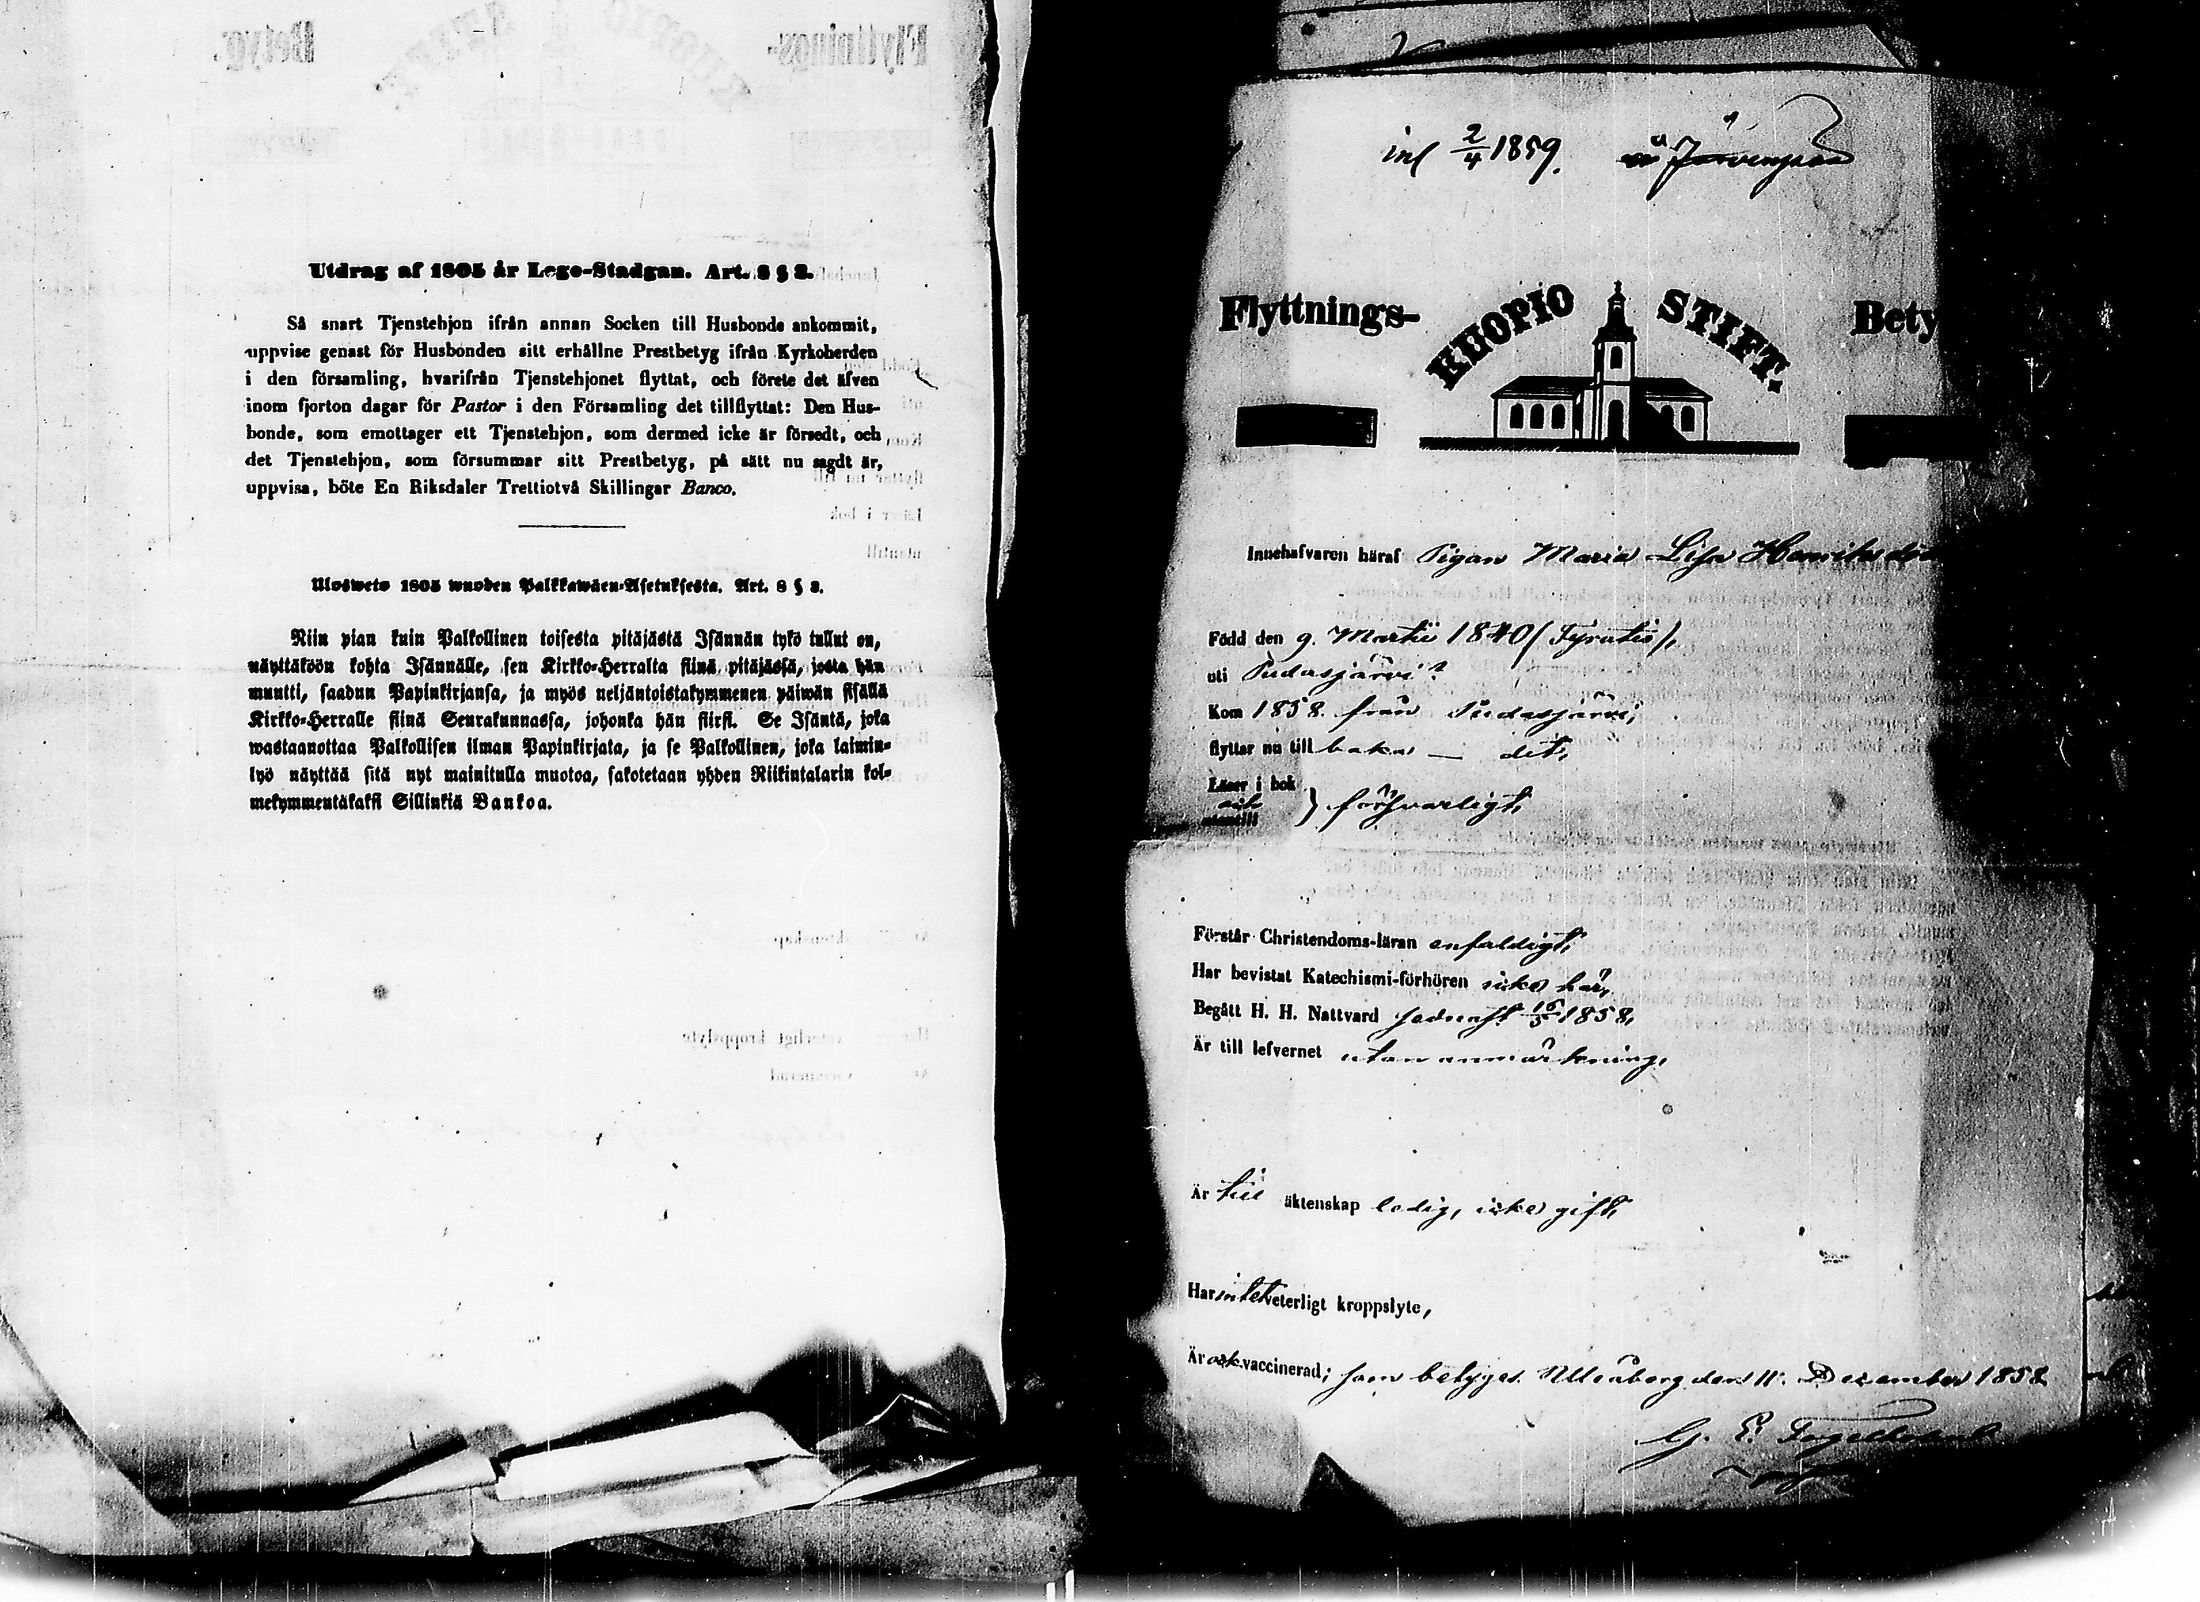 Utdrag af 1805 år Lego-Stadgan. Art. 8 § 3.
Så snart Tjenstehjon ifrån annan Socken till Husbonde ankommit,
uppvise genast för Husbonden sitt erhållne Prestbetyg ifrån Kyrkoherden
i den församling, hvarifrån Tjenstehjonet flyttat, och förete det äfven
inom fjorton dagar för Pastor i den Församling det tillflyttat: Den Hus-
bonde, som emottager ett Tjenstehjon, som dermed icke är försedt, och
det Tjenstehjon, som försummar sitt Prestbetyg, på sätt nu sagdt är,
uppvisa, böte En Riksdaler Trettiotvå Skillingar Banco.
Ulosweto 1805 wuoden Palkkawäen-Asetuksesta. Art. 8 § 3.
Niin pian kuin Palkollinen toisesta pitäjästä Isännän tykö tullut on,
näyttäköön kohta Isännälle, sen Kirkko-Herralta siinä pitäjässä, josta hän
muutti, saadun Papinkirjansa, ja myös neljäntoistakymmenen päiwän sisällä
Kirkko-Herralle siinä Seurakunnassa, johonka hän siirsi. Se Isäntä, joka
wastaanottaa Palkollisen ilman Papinkirjata, ja se Palkollinen, joka laimin-
lyö näyttää sitä nyt mainitulla muotoa, sakotetaan yhden Riikintalarin kol-
mekymmentäkaksi Sillinkiä Bankoa.
inl 2/4 1859. Järvenpää
Flyttnings- KUOPIO STIFT. Bety
Innehafvaren häraf Pigan Maria Lisa Henriksdr
Född den 9. Martii 1840 (Tyrnäs),
uti Pudasjärvi?
Kom 1858. från Pudasjärvi,
flyttar nu till baka — dit,
Läser i bok
utantill } försvarligt,
Förstår Christendoms-läran enfaldigt,
Har bevistat Katechismi-förhören icke här,
Begått H. H. Nattvard sednast 16/5 1858,
Är till lefvernet utan anmärkning,
Är till äktenskap ledig, icke gift,
Har intet veterligt kroppslyte,
Är ock vaccinerad; som betygas Uleåborg den 11. December 1858
G. E.